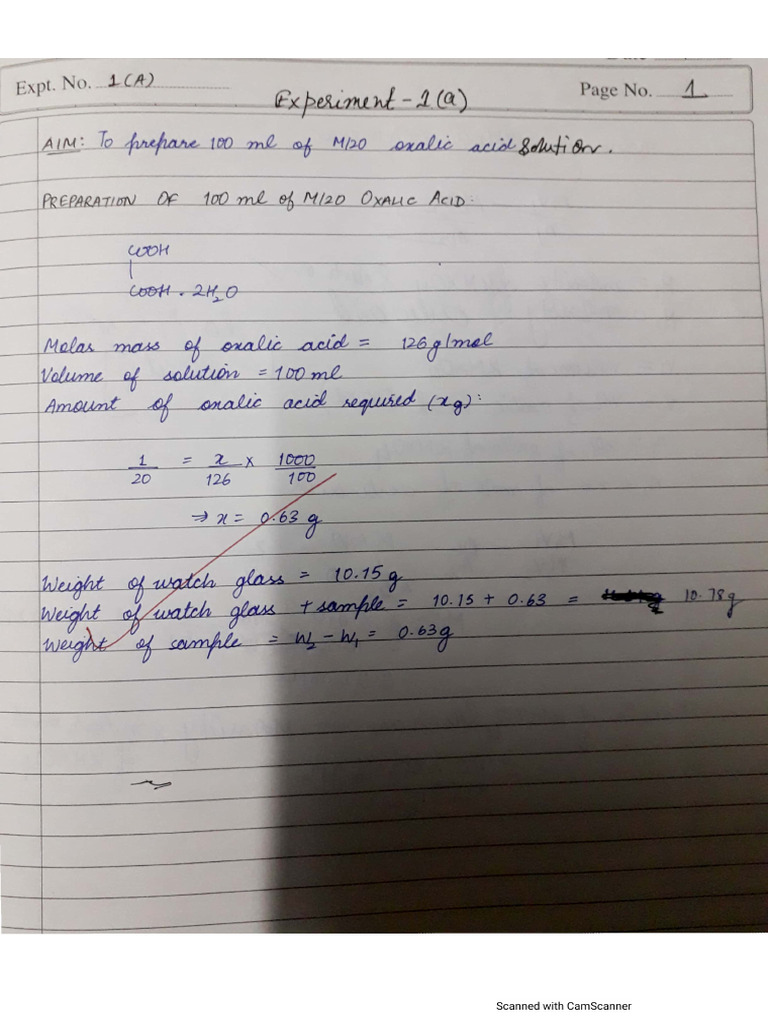 Expt. No. 1(A)
Page No. 1
Experiment - 1(a)
AIM: To prepare 100 ml of M/20 oxalic acid Solution.
PREPARATION OF 100 ml of M/20 OXALIC ACID:
COOH
|
COOH . 2H₂O
Molar mass of oxalic acid = 126 g/mol
Volume of solution = 100 ml
Amount of oxalic acid required (xg):
1/20 = x/126 × 1000/100
⇒ x = 0.63 g
Weight of watch glass = 10.15 g
Weight of watch glass + sample = 10.15 + 0.63 = 10.78g
Weight of sample = W₂ - W₁ = 0.63g
Scanned with CamScanner